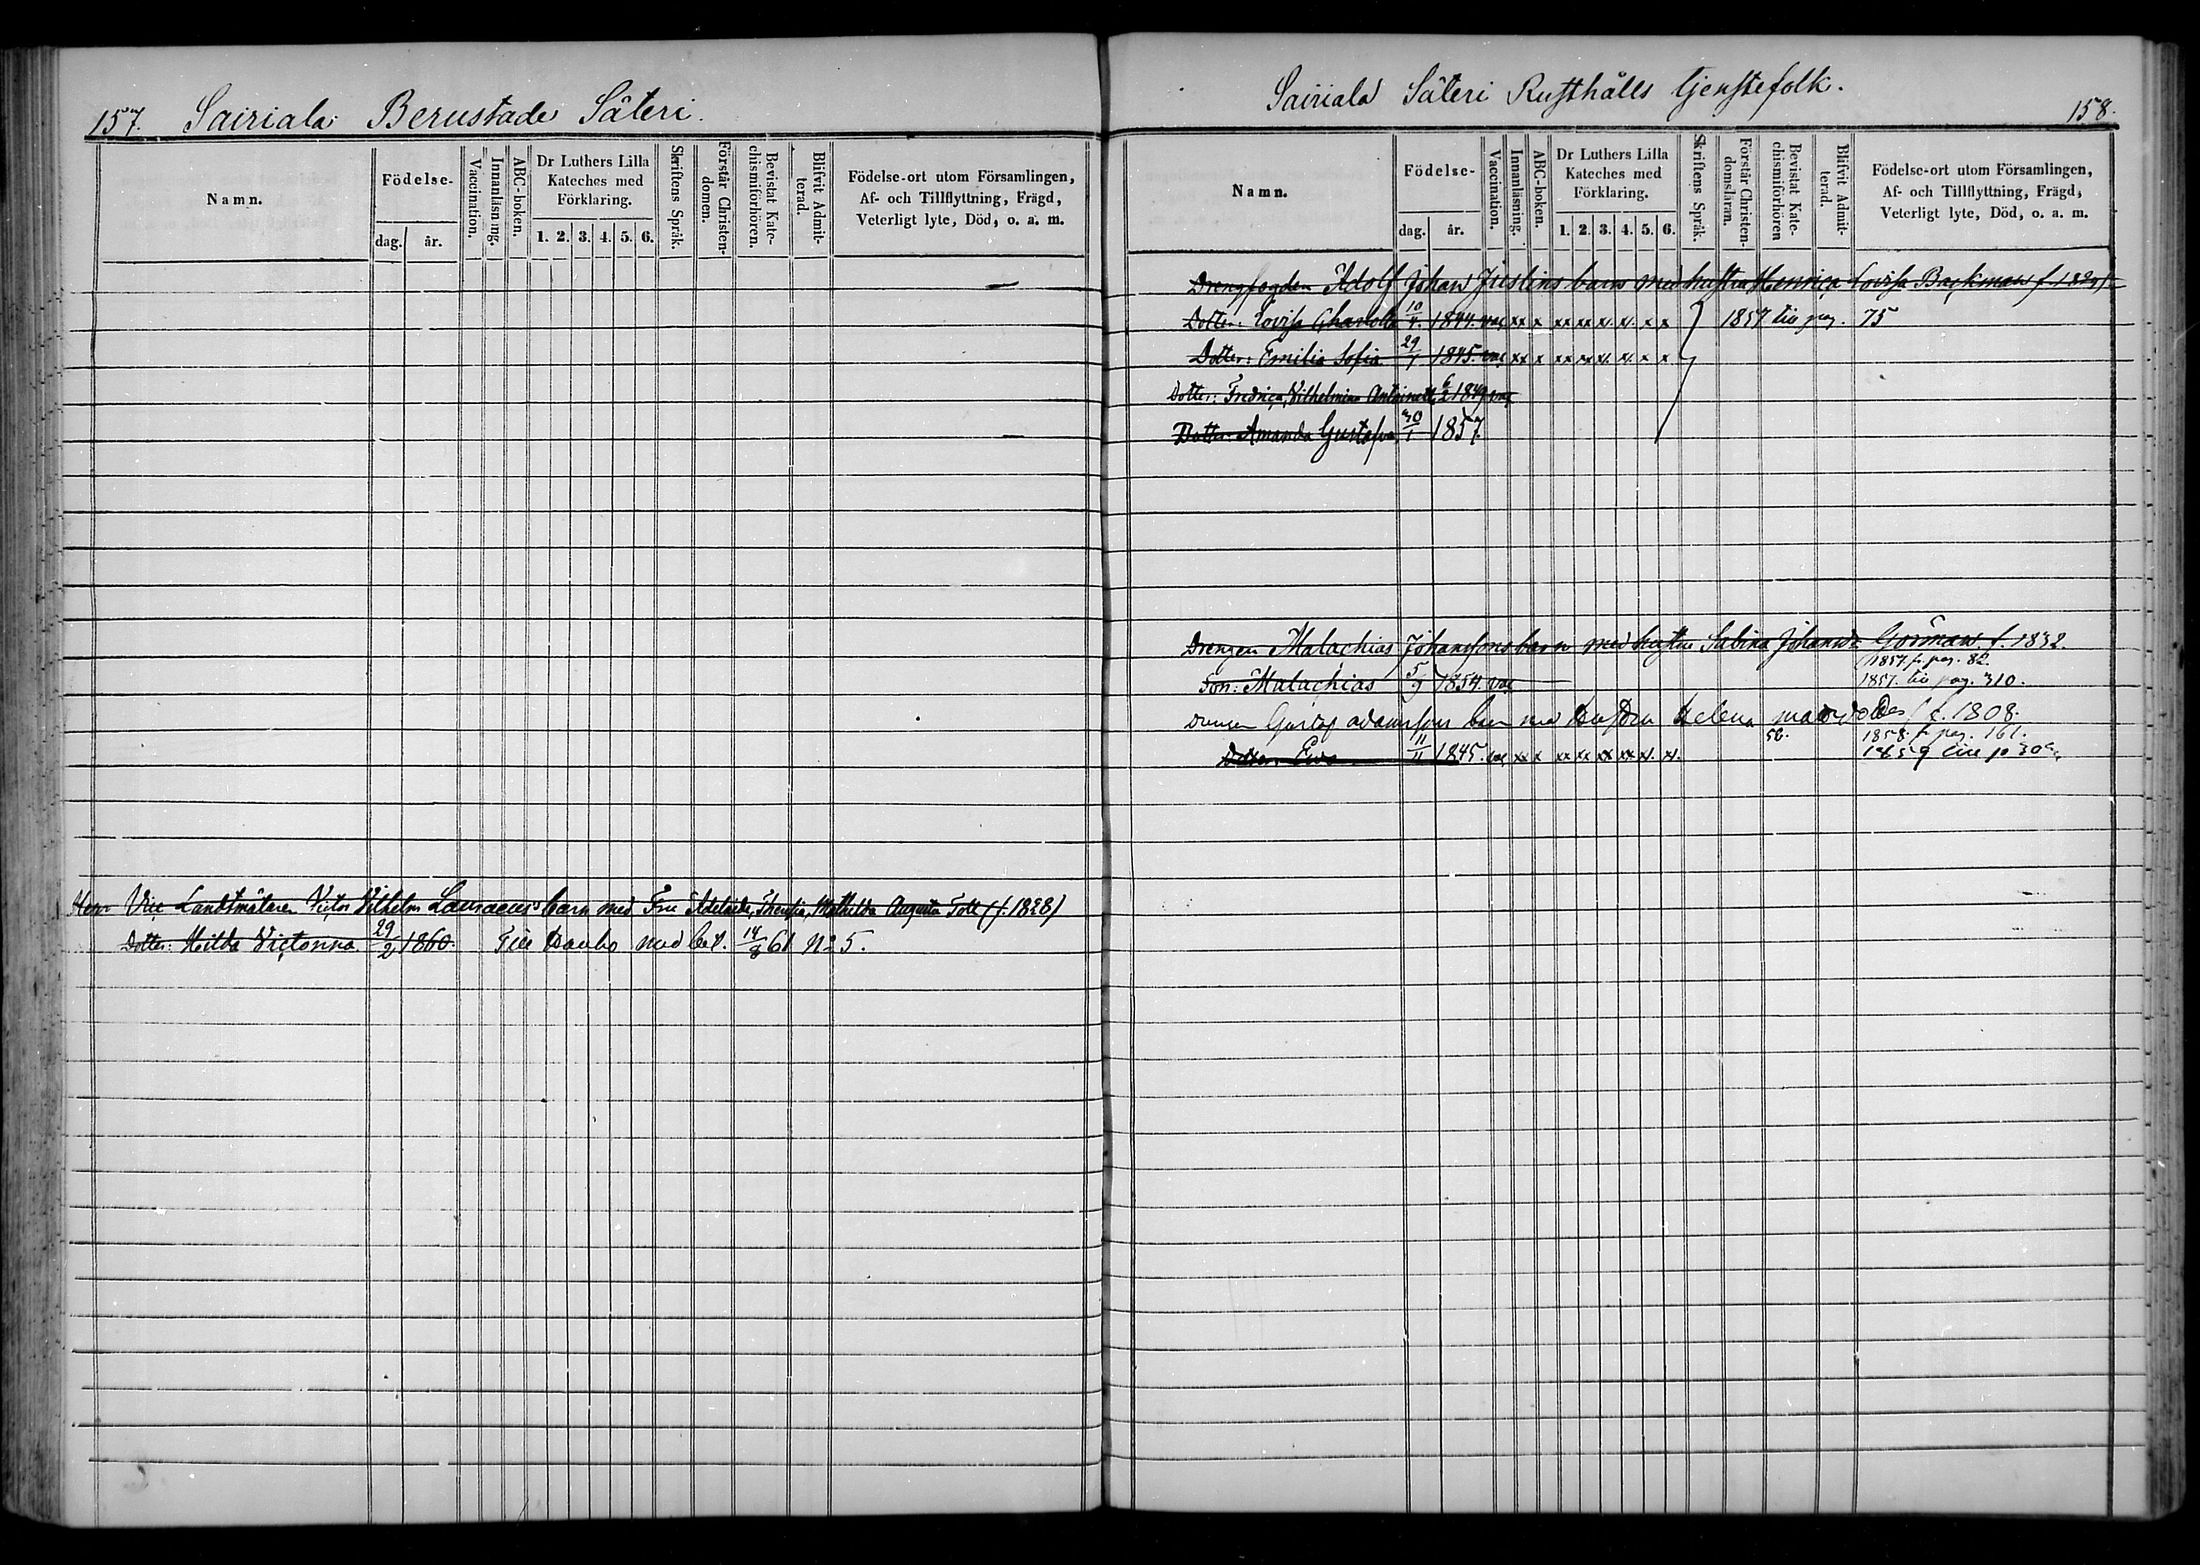 157. Sairiala Berustade Säteri.
Namn.
Födelse-
dag. år.
Vaccination.
Innanläsning.
ABC-boken.
Dr Luthers Lilla
Kateches med
Förklaring.
1. 2. 3. 4. 5. 6.
Skriftens Språk.
Förstår Christen-
domen.
Bevistat Kate-
chismiförhören.
Blifvit Admit-
terad.
Födelse-ort utom Församlingen,
Af- och Tillflyttning, Frägd,
Veterligt lyte, Död, o. a. m.
Herr Vice Landtmätaren Victor Vilhelm barn med Fru Adelaide, Mathilda Augusta Toll (f. 1828)
Dotter: Hilda Victorina 29/2 1860. med bet. 14/8 61 No 5.
Sairiala Säteri Rusthålls tjenstefolk.
158.
Namn.
Födelse-
dag. år.
Vaccination.
Innanläsning.
ABC-boken.
Dr Luthers Lilla
Kateches med
Förklaring.
1. 2. 3. 4. 5. 6.
Skriftens Språk.
Förstår Christen-
domsläran.
Bevistat Kate-
chismiförhören
Blifvit Admit-
terad.
Födelse-ort utom Församlingen,
Af- och Tillflyttning, Frägd,
Veterligt lyte, Död, o. a. m.
Drengfogden Adolf Johan Juslins barn med hustru Henrica Lovisa Backman
Dotter: Lovisa Charlotta 10/4. 1844. vac xx x xx xx x. x. x x 1857 till pag. 75
Dotter: Emilia Sofia 29/1 1845. vac xx x xx xx x. x. x x
Dotter: Fredrica, Vilhelmina 6/2 1849 vac
Dotter: Amanda Gustafva 30/1 1857.
Drengen Malachias Johanssons barn med hustru Sabina Johansdr f. 1832.
1857. fr. pag. 82.
Son: Malachias 5/9 1854. vac 1857. till pag. 310.
Drengen Gustaf Adamssons barn med hustru Helena f. 1808.
58. 1858. fr. pag. 161.
Dotter: Eva 11/11 1845. vac xx x xx xx xx xx x. x.